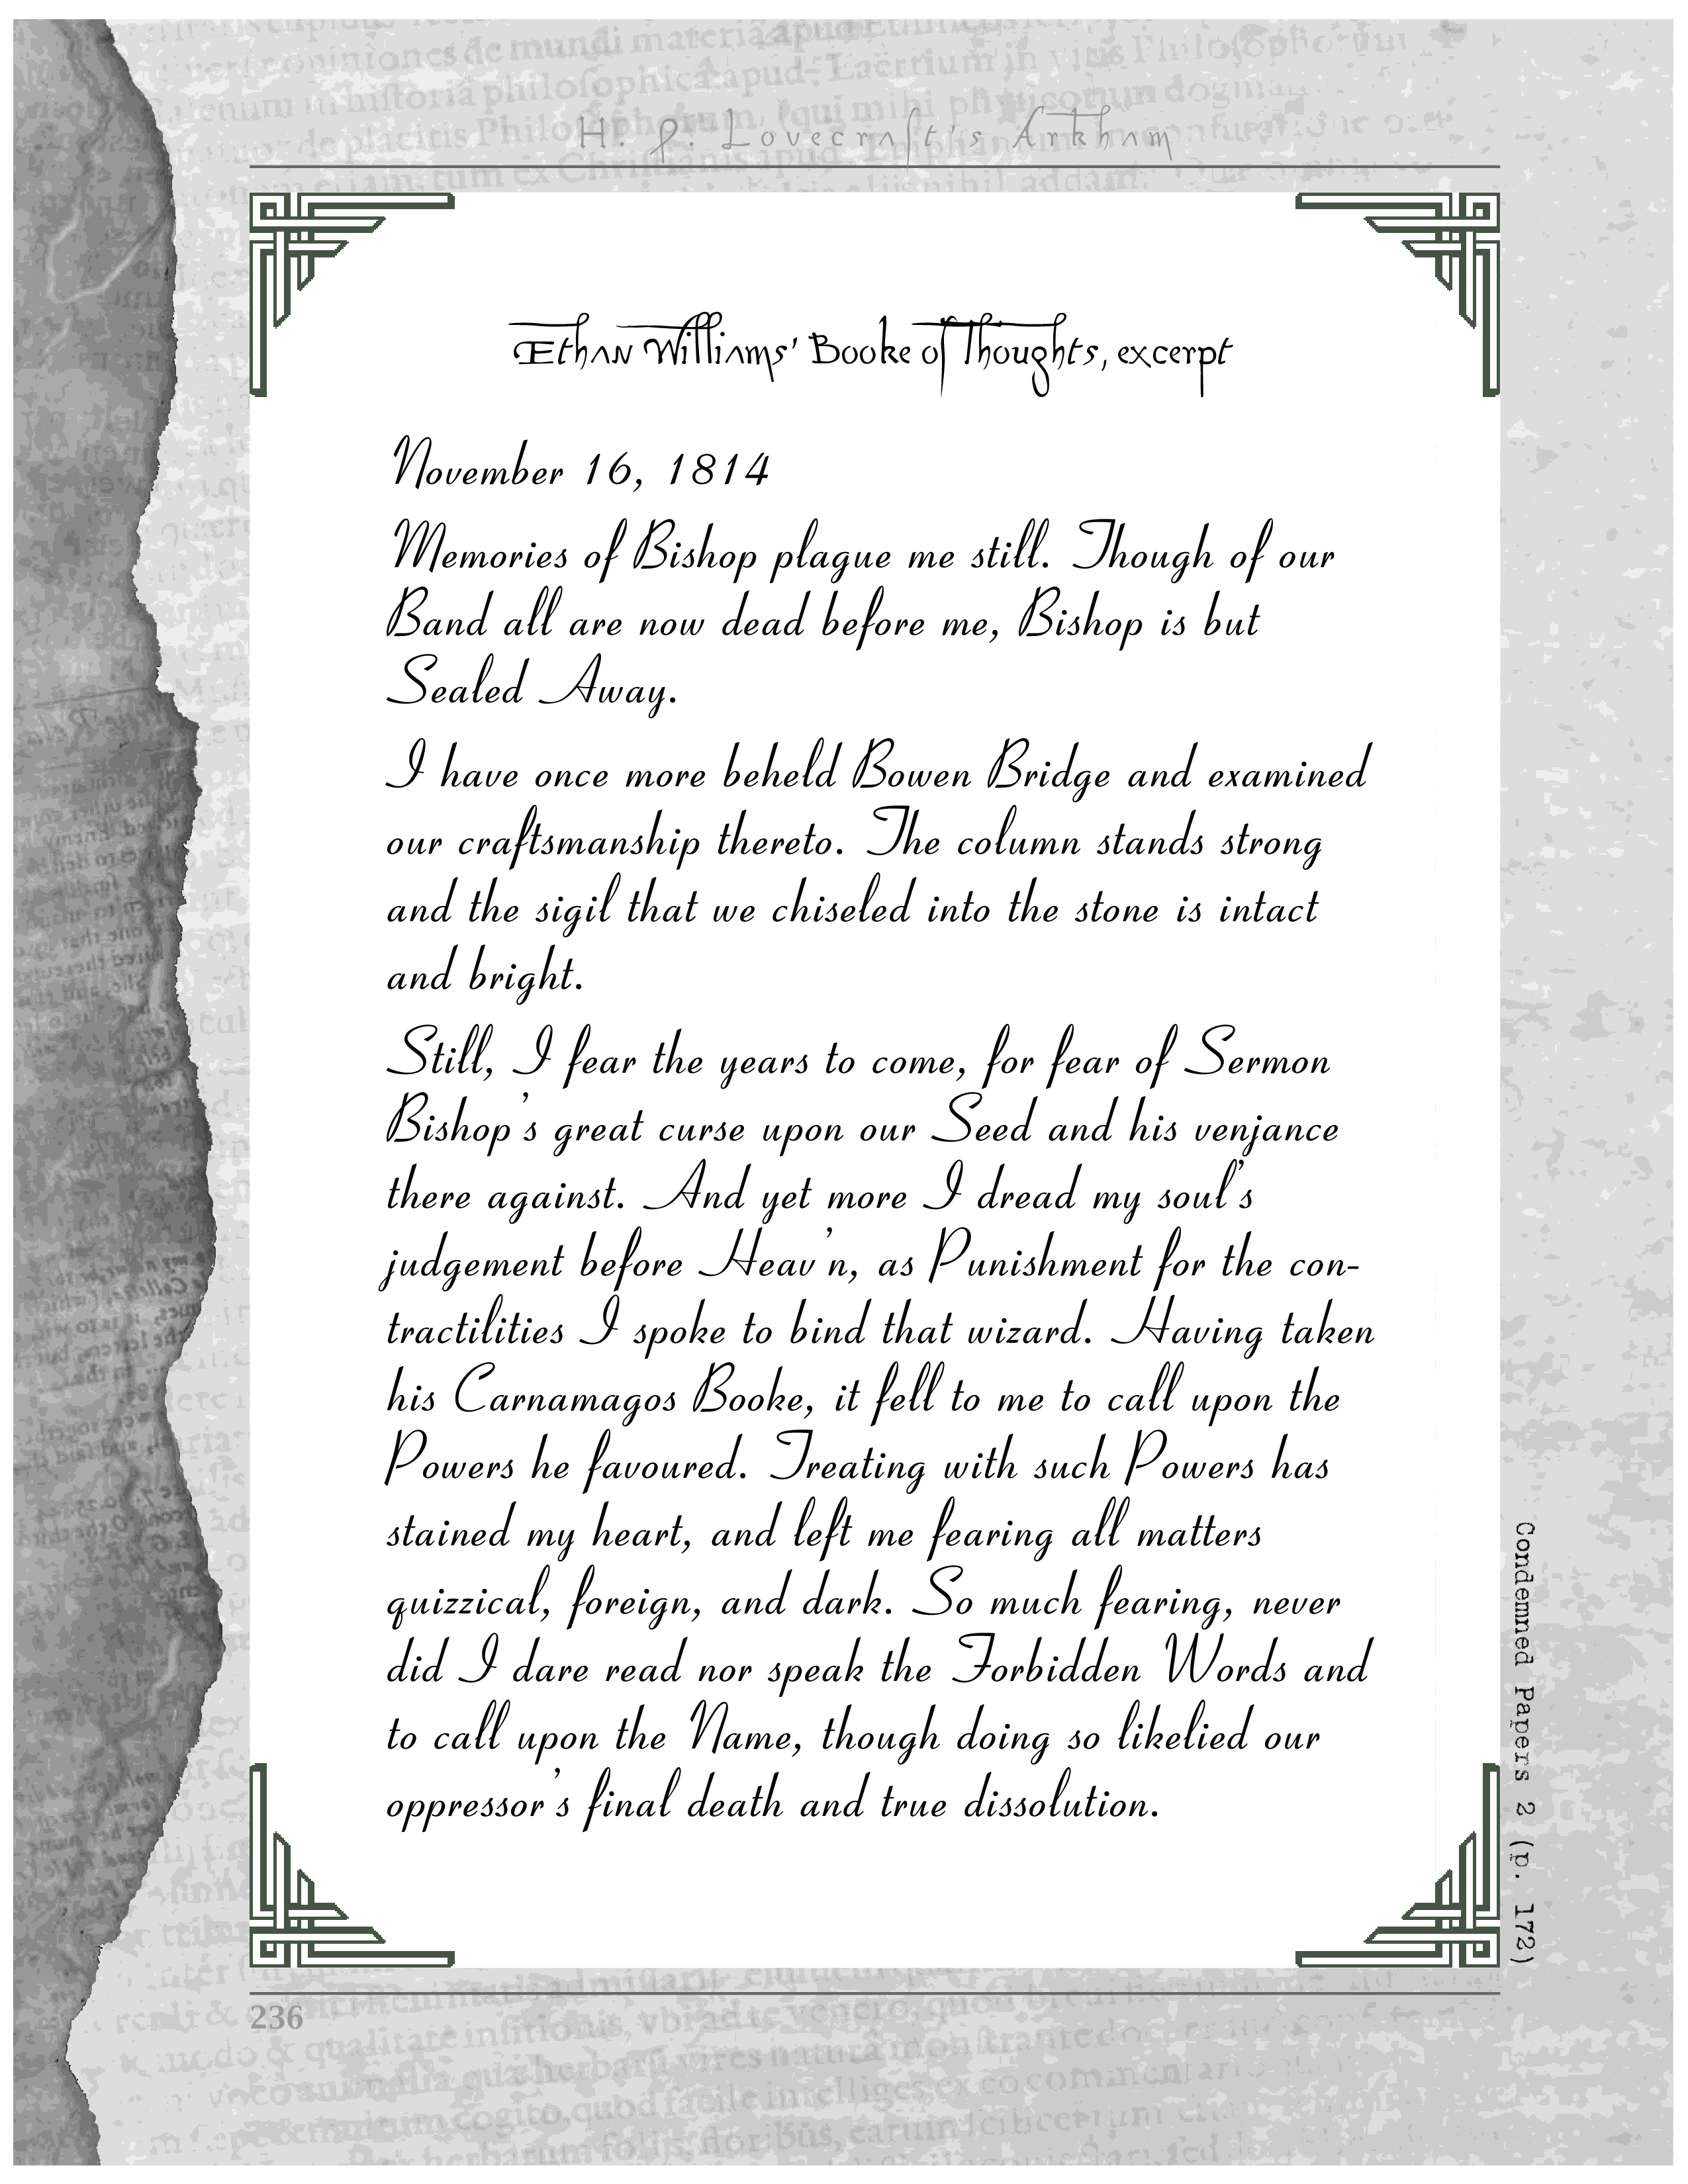 H. P. Lovecraft's Arkham
Ethan Williams' Booke of Thoughts, excerpt
November 16, 1814
Memories of Bishop plague me still. Though of our
Band all are now dead before me, Bishop is but
Sealed Away.
I have once more beheld Bowen Bridge and examined
our craftsmanship thereto. The column stands strong
and the sigil that we chiseled into the stone is intact
and bright.
Still, I fear the years to come, for fear of Sermon
Bishop's great curse upon our Seed and his venjance
there against. And yet more I dread my soul's
judgement before Heav'n, as Punishment for the con-
tractilities I spoke to bind that wizard. Having taken
his Carnamagos Booke, it fell to me to call upon the
Powers he favoured. Treating with such Powers has
stained my heart, and left me fearing all matters
quizzical, foreign, and dark. So much fearing, never
did I dare read nor speak the Forbidden Words and
to call upon the Name, though doing so likelied our
oppressor's final death and true dissolution.
Condemned Papers 2 (p. 172)
236